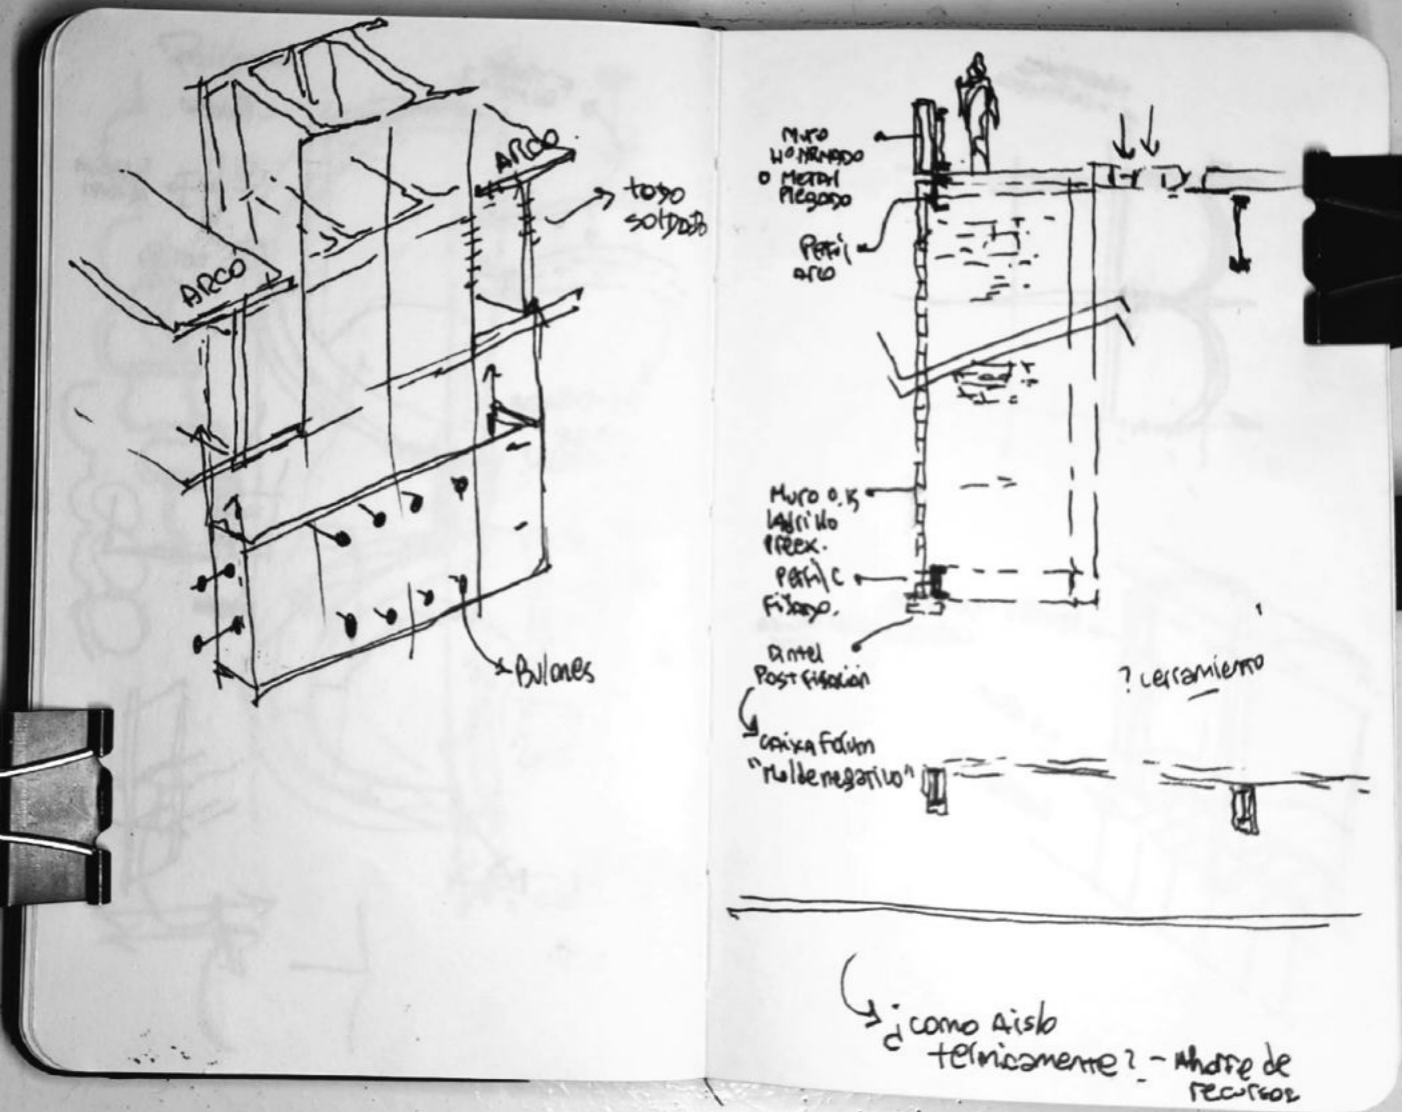 ARCO
todo
soldado
ARCO
Bulones
Muro
Hormado
o Metal
Plegado
Perfil
arco
Muro 0.15
ladrillo
Preex.
Perfil C
Fijado.
Dintel
Post fijación
? cerramiento
Caixa Forum
"Molde negativo"
¿como Aislo
termicamente? - Ahorre de
recursos